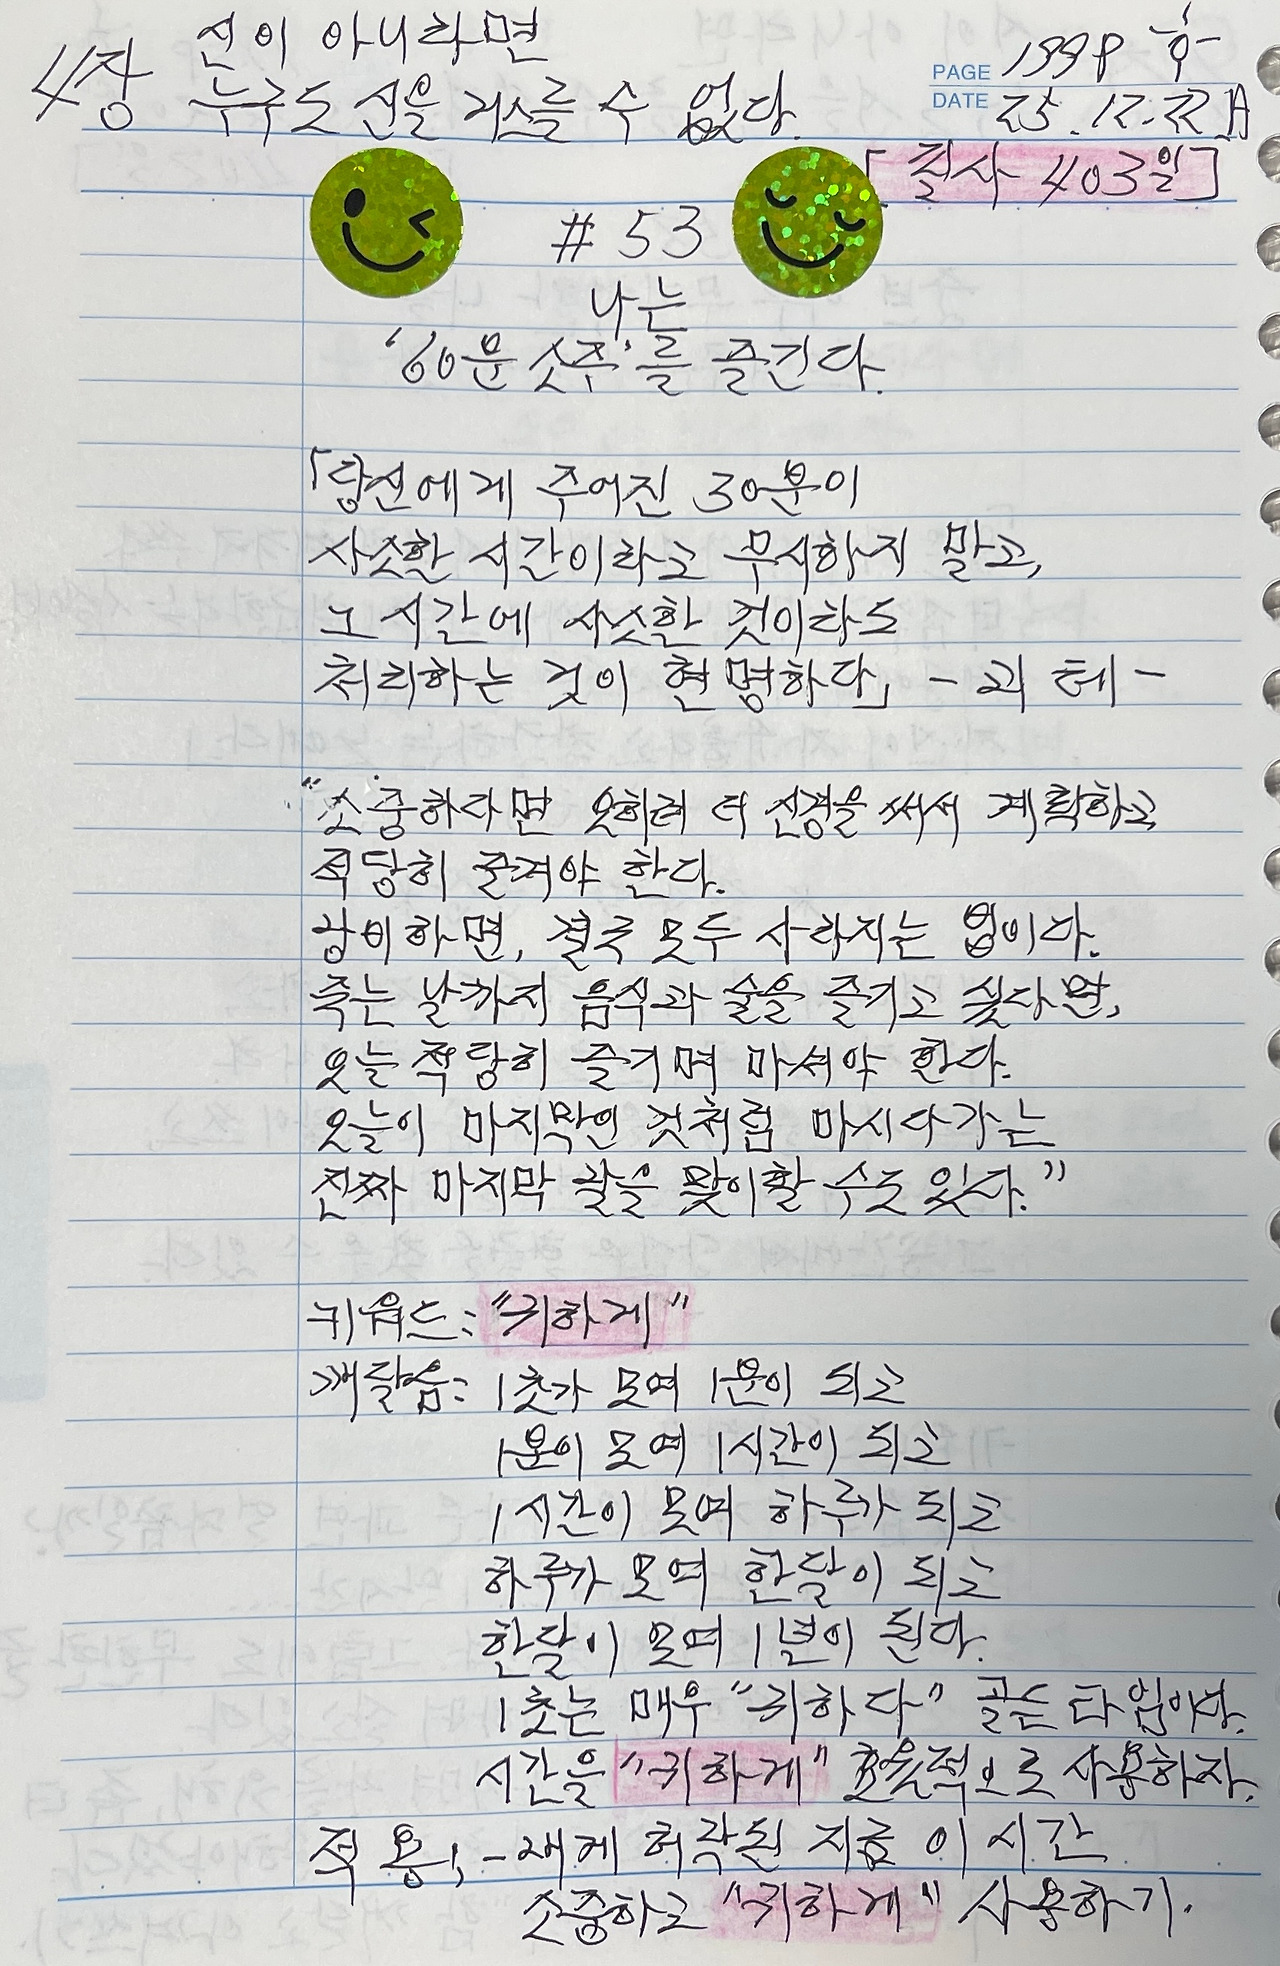 4장 신이 아니라면
누구도 신을 거스를 수 없다.
PAGE 1998 후
DATE 25.12.22 月
[필사 403일]
#53
나는
'60분 소주'를 즐긴다.
「당신에게 주어진 30분이
사소한 시간이라고 무시하지 말고,
그 시간에 사소한 것이라도
처리하는 것이 현명하다」 - 괴테 -
"소중하다면 오히려 더 신경을 써서 계획하고
적당히 즐겨야 한다.
낭비하면, 결국 모두 사라지는 법이다.
죽는 날까지 음식과 술을 즐기고 싶다면,
오늘 적당히 즐기며 마셔야 한다.
오늘이 마지막인 것처럼 마시다가는
진짜 마지막 날을 맞이할 수도 있다."
키워드: "귀하게"
깨달음: 1초가 모여 1분이 되고
1분이 모여 1시간이 되고
1시간이 모여 하루가 되고
하루가 모여 한달이 되고
한달이 모여 1년이 된다.
1초는 매우 "귀하다" 골든 타임이다.
시간을 "귀하게" 효율적으로 사용하자.
적용; - 내게 허락된 지금 이 시간
소중하고 "귀하게" 사용하기.